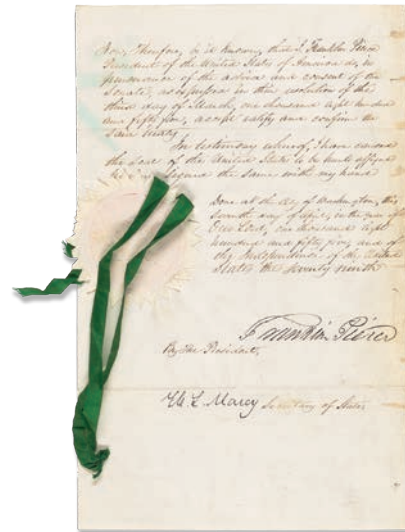 Now, Therefore, be it known, that I Franklin Pierce
President of the United States of America do, in
pursuance of the advice and consent of the
Senate, as expressed in their resolution of the
third day of March, one thousand eight hundred
and fifty five, accept ratify and confirm the
said treaty
In testimony whereof, I have caused
the seal of the United States to be hereto affixed
signed the same with my hand
Done at the City of Washington, this
seventh day of April, in the year of
Our Lord, one thousand eight
hundred and fifty five, and of
the Independence of the United
States the seventy ninth
Franklin Pierce
By the President,
W L Marcy Secretary of State